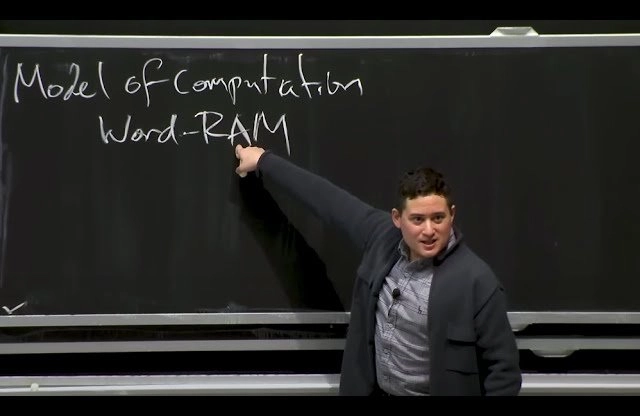 Model of Computation
Word-RAM